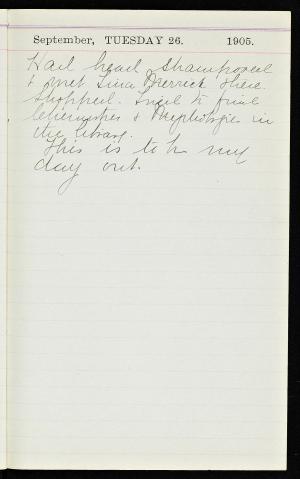 September, TUESDAY 26. 1905.
Had head shampooed
& met Lina Merrick there.
Shopped. Tried to find
Chemistries & in
the library.
This is to be my
day out.